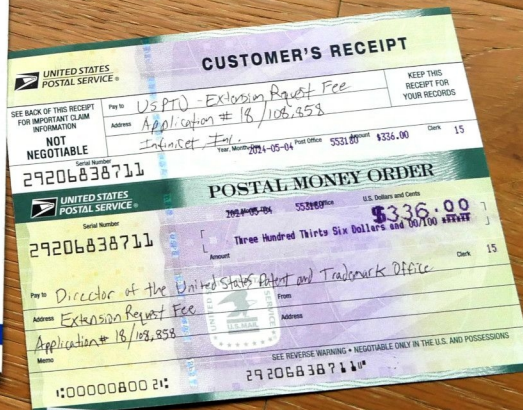 CUSTOMER'S RECEIPT
UNITED STATES
POSTAL SERVICE®
SEE BACK OF THIS RECEIPT
FOR IMPORTANT CLAIM
INFORMATION
NOT
NEGOTIABLE
Pay to USPTO - Extension Request Fee
Address Application # 18/108,858
Infiniset, Inc.
KEEP THIS
RECEIPT FOR
YOUR RECORDS
Serial Number
29206838711
Year, Month, 2024-05-04 Post Office 553180 Amount $336.00 Clerk 15
UNITED STATES
POSTAL SERVICE®
POSTAL MONEY ORDER
Serial Number
29206838711
2024-05-04 553180 Office
U.S. Dollars and Cents
$336.00
Amount Three Hundred Thirty Six Dollars and 00/100
Clerk 15
Pay to Director of the United States Patent and Trademark Office
Address Extension Request Fee
Application # 18/108,858
Memo
From
Address
U.S. MAIL
SEE REVERSE WARNING • NEGOTIABLE ONLY IN THE U.S. AND POSSESSIONS
00000800 2
29206838711